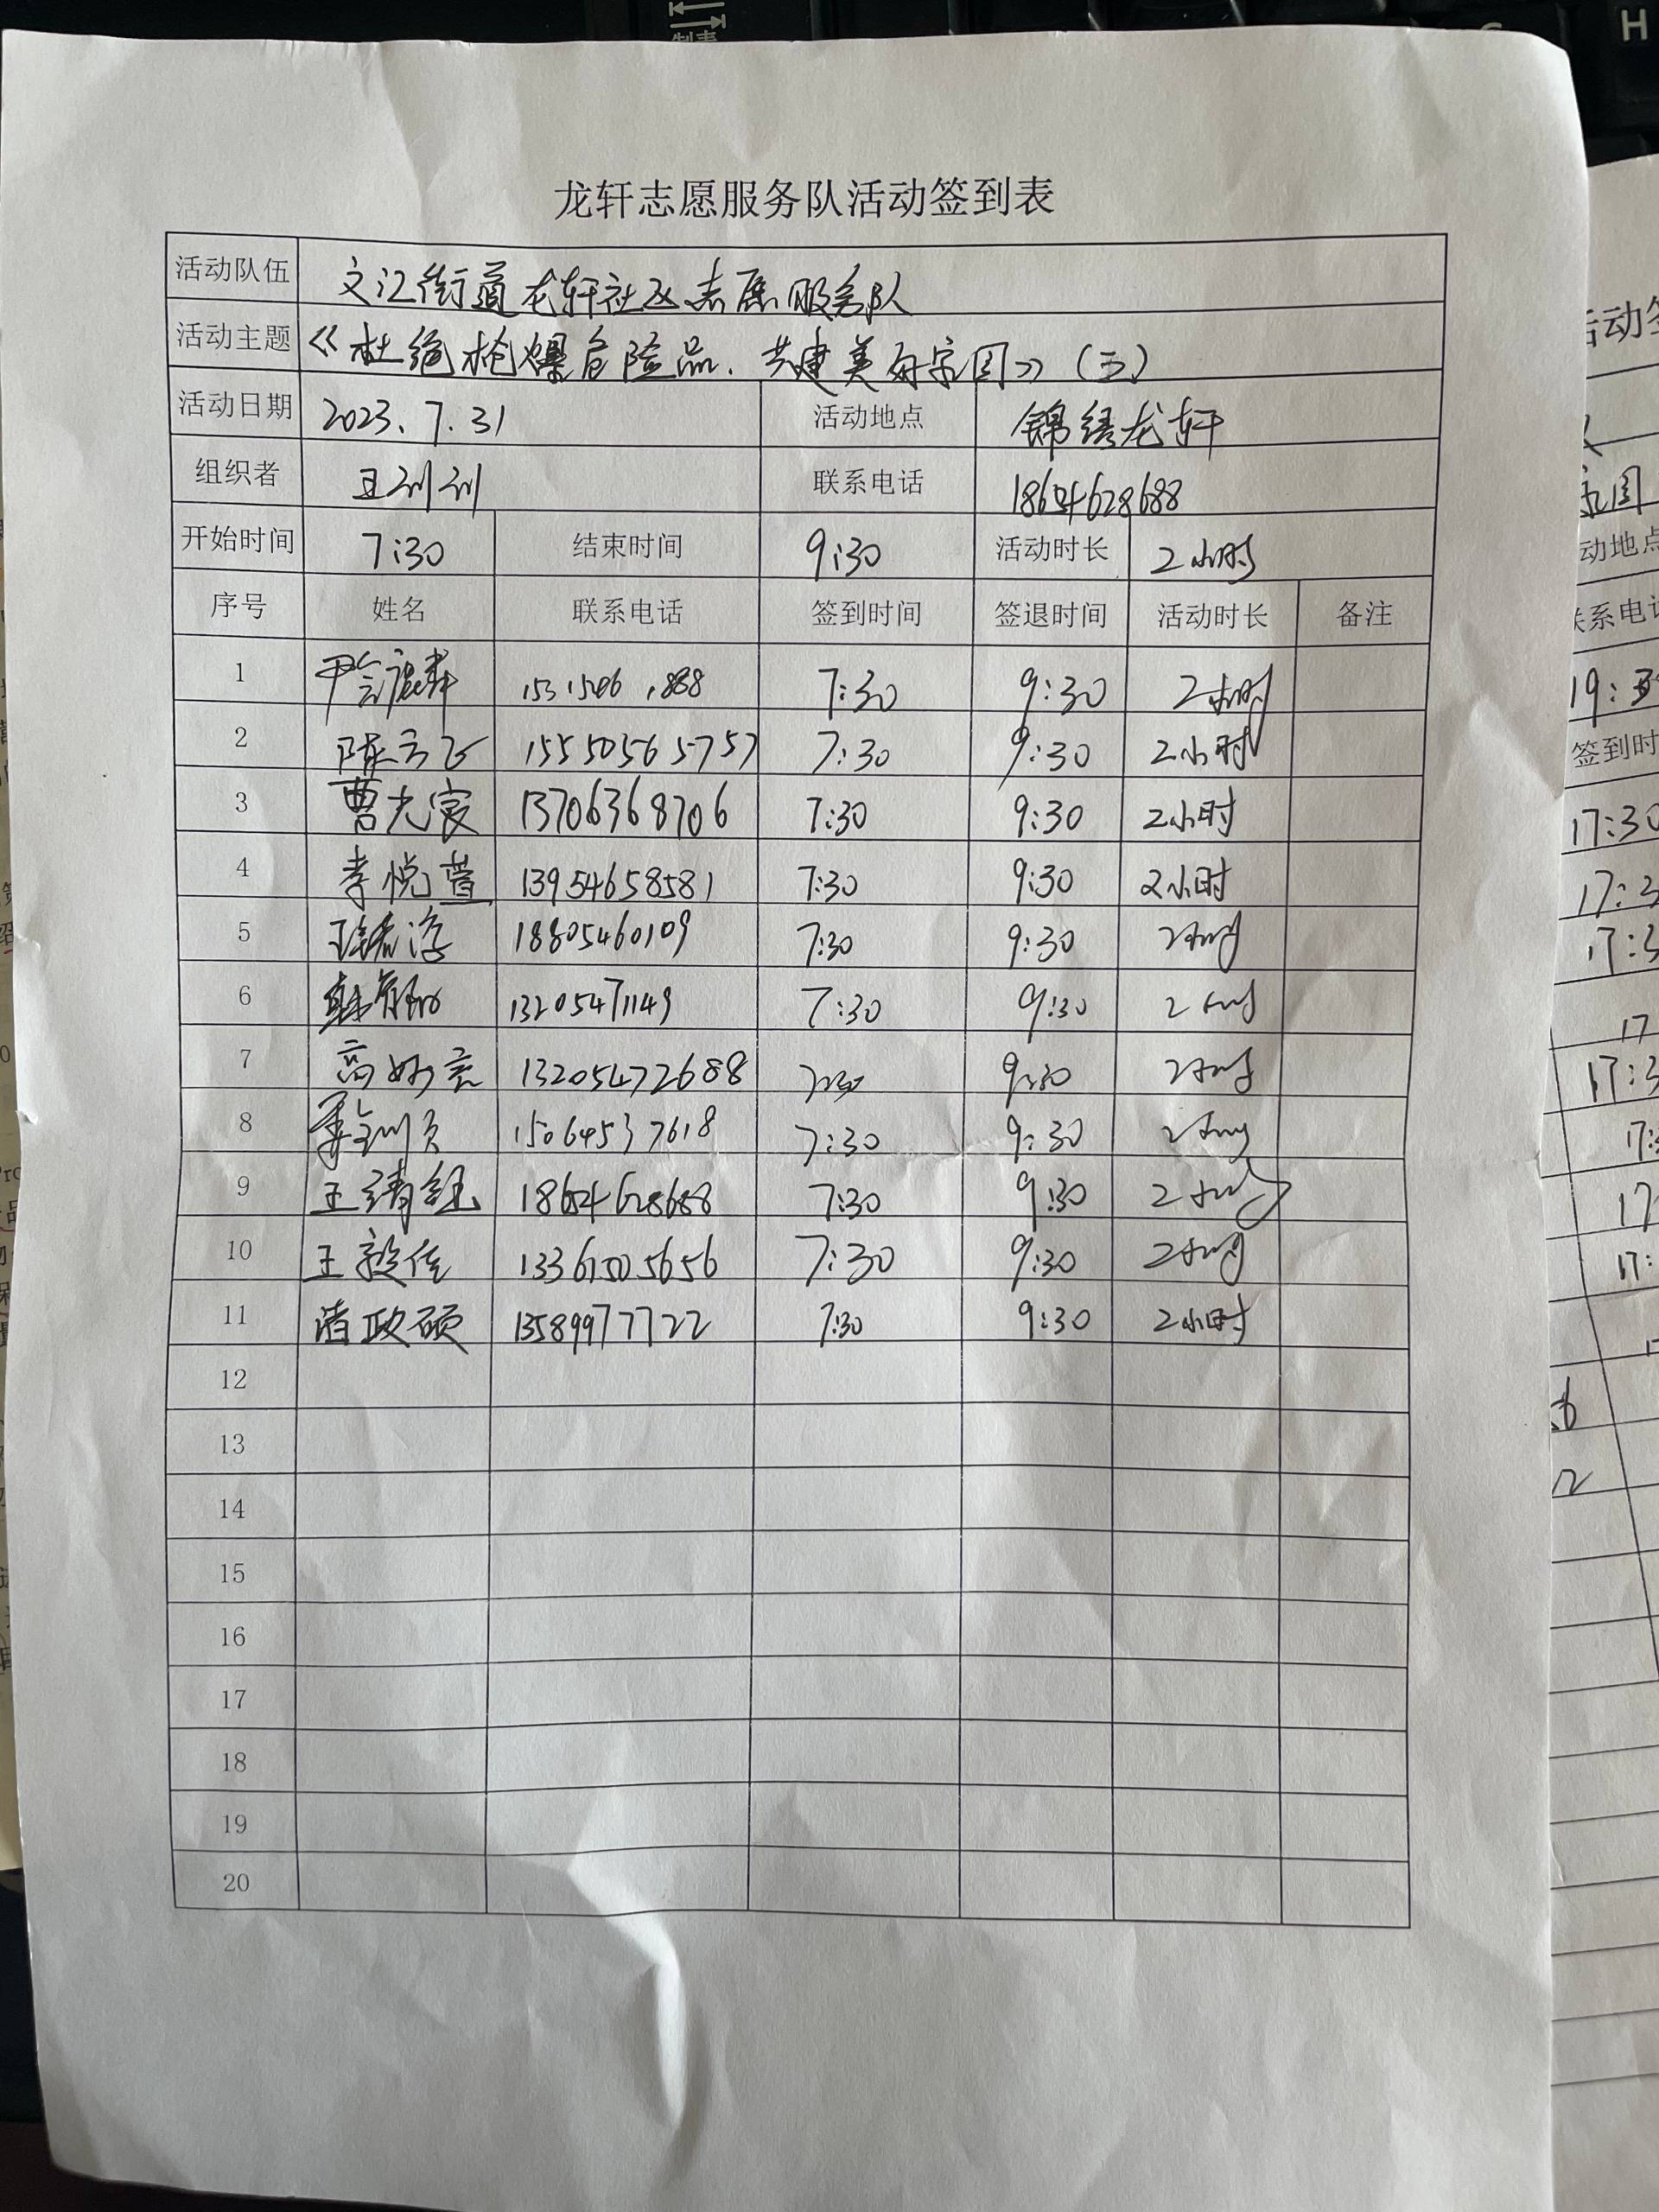 龙轩志愿服务队活动签到表
活动队伍 文汇街道龙轩社区志愿服务队
活动主题 《杜绝枪爆危险品、共建美好家园》（三）
活动日期 2023.7.31 活动地点 锦绣龙轩
组织者 王训训 联系电话 18654628688
开始时间 7:30 结束时间 9:30 活动时长 2小时
序号 姓名 联系电话 签到时间 签退时间 活动时长 备注
1 7:30 9:30 2小时
2 15550565757 7:30 9:30 2小时
3 曹尤宸 13706368706 7:30 9:30 2小时
4 李悦萱 13954658581 7:30 9:30 2小时
5 18805460109 7:30 9:30 2小时
6 13205471149 7:30 9:30 2小时
7 高妙言 13205472688 7:30 9:30 2小时
8 15064537618 7:30 9:30 2小时
9 王靖钰 18654628688 7:30 9:30 2小时
10 王毅佳 13361505656 7:30 9:30 2小时
11 政硕 13589977722 7:30 9:30 2小时
12
13
14
15
16
17
18
19
20
动地点
联系电话
19:30
签到时
17:30